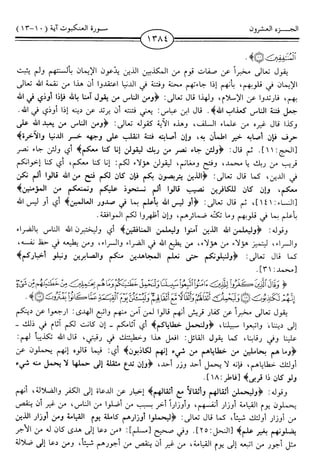 الجـزء العشرون
١٣٨٤
سورة العنكبوت آية (١٠-١٣)
الْمُنَافِقِينَ ﴾.
يقول تعالى مخبراً عن صفات قوم من المكذبين الذين يدَّعون الإيمان بألسنتهم ولم يثبت
الإيمان في قلوبهم، بأنهم إذا جاءتهم محنة وفتنة في الدنيا اعتقدوا أن هذا من نقمة الله تعالى
بهم، فارتدوا عن الإسلام، ولهذا قال تعالى: ﴿ومن الناس من يقول آمنا بالله فإذا أوذي في الله
جعل فتنة الناس كعذاب الله﴾. قال ابن عباس: يعني فتنته أن يرتد عن دينه إذا أوذي في الله.
وكذا قال غيره من علماء السلف، وهذه الآية كقوله تعالى: ﴿ومن الناس من يعبد الله على
حرف فإن أصابه خير اطمأن به، وإن أصابته فتنة انقلب على وجهه خسر الدنيا والآخرة﴾
[الحج: ١١]. ثم قال: ﴿ولئن جاء نصر من ربك ليقولن إنا كنا معكم﴾ أي ولئن جاء نصر
قريب من ربك يا محمد، وفتح ومغانم، ليقولن هؤلاء لكم: إنا كنا معكم، أي كنا إخوانكم
في الدين، كما قال تعالى: ﴿الذين يتربصون بكم فإن كان لكم فتح من الله قالوا ألم نكن
معكم، وإن كان للكافرين نصيب قالوا ألم نستحوذ عليكم ونمنعكم من المؤمنين﴾
[النساء: ١٤١]، ثم قال تعالى: ﴿أو ليس الله بأعلم بما في صدور العالمين﴾ أي أو ليس الله
بأعلم بما في قلوبهم وما تكنّه ضمائرهم، وإن أظهروا لكم الموافقة.
وقوله: ﴿وليعلمن الله الذين آمنوا وليعلمن المنافقين﴾ أي وليختبرن الله الناس بالضراء
والسراء، ليتميز هؤلاء من هؤلاء، من يطيع الله في الضراء والسراء، ومن يطيعه في حظ نفسه،
كما قال تعالى: ﴿ولنبلونكم حتى نعلم المجاهدين منكم والصابرين ونبلو أخباركم﴾
[محمد: ٣١].
يقول تعالى مخبراً عن كفار قريش أنهم قالوا لمن آمن منهم واتبع الهدى: ارجعوا عن دينكم
إلى ديننا، واتبعوا سبيلنا، ﴿ولنحمل خطاياكم﴾ أي آثامكم - إن كانت لكم آثام في ذلك -
علينا وفي رقابنا، كما يقول القائل: افعل هذا وخطيئتك في رقبتي، قال الله تكذيباً لهم:
﴿وما هم بحاملين من خطاياهم من شيء إنهم لكاذبون﴾ أي: فيما قالوه إنهم يحملون عن
أولئك خطاياهم، فإنه لا يحمل أحد وزر أحد، ﴿وإن تدع مثقلة إلى حملها لا يحمل منه شيء
ولو كان ذا قربى﴾ [فاطر: ١٨].
وقوله: ﴿وليحملن أثقالهم وأثقالاً مع أثقالهم﴾ إخبار عن الدعاة إلى الكفر والضلالة، أنهم
يحملون يوم القيامة أوزار أنفسهم، وأوزاراً أخر بسبب من أضلوا من الناس، من غير أن ينقص
من أوزار أولئك شيئاً، كما قال تعالى: ﴿ليحملوا أوزارهم كاملة يوم القيامة ومن أوزار الذين
يضلونهم بغير علم﴾ [النحل: ٢٥]. وفي صحيح [مسلم]: «من دعا إلى هدى كان له من الأجر
مثل أجور من اتبعه إلى يوم القيامة، من غير أن ينقص من أجورهم شيئاً، ومن دعا إلى ضلالة